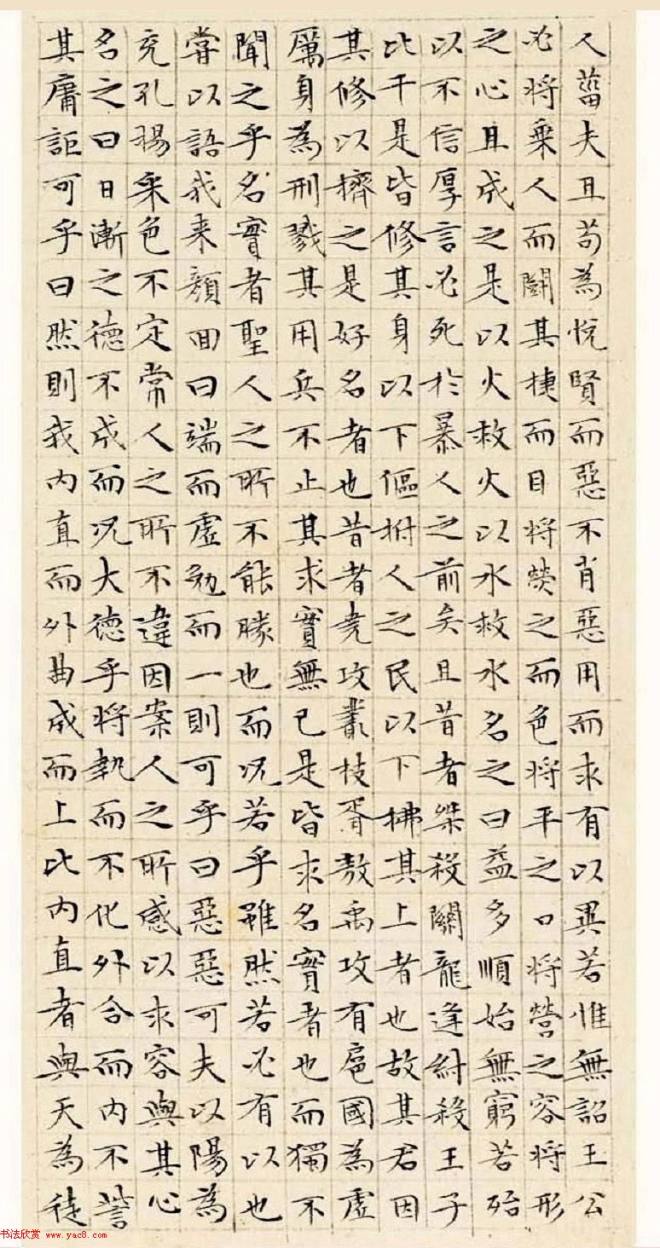 人菑夫且苟為悅賢而惡不肖惡用而求有以異若惟無詔王公
必將乘人而鬭其捷而目將熒之而色將平之口將營之容將形
之心且成之是以火救火以水救水名之曰益多順始無窮若殆
以不信厚言必死於暴人之前矣且昔者桀殺關龍逢紂殺王子
比干是皆修其身以下傴拊人之民以下拂其上者也故其君因
其修以擠之是好名者也昔者堯攻叢枝胥敖禹攻有扈國為虛
厲身為刑戮其用兵不止其求實無已是皆求名實者也而獨不
聞之乎名實者聖人之所不能勝也而況若乎雖然若必有以也
嘗以語我來顏回曰端而虛勉而一則可乎曰惡惡可夫以陽為
充孔揚采色不定常人之所不違因案人之所感以求容與其心
名之曰日漸之德不成而況大德乎將執而不化外合而內不訾
其庸詎可乎曰然則我內直而外曲成而上比內直者與天為徒
书法欣赏 www.yac8.com